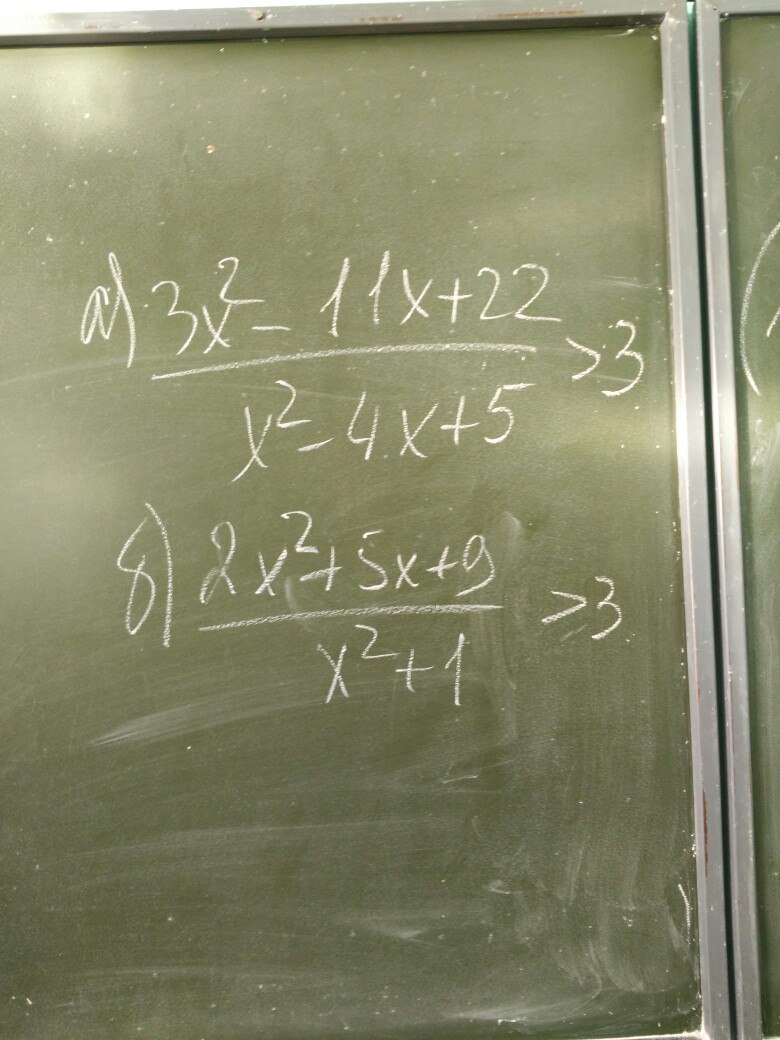 а) 3x² - 11x+22
x² - 4x+5 >3
б) 2x²+5x+9
x²+1 >3